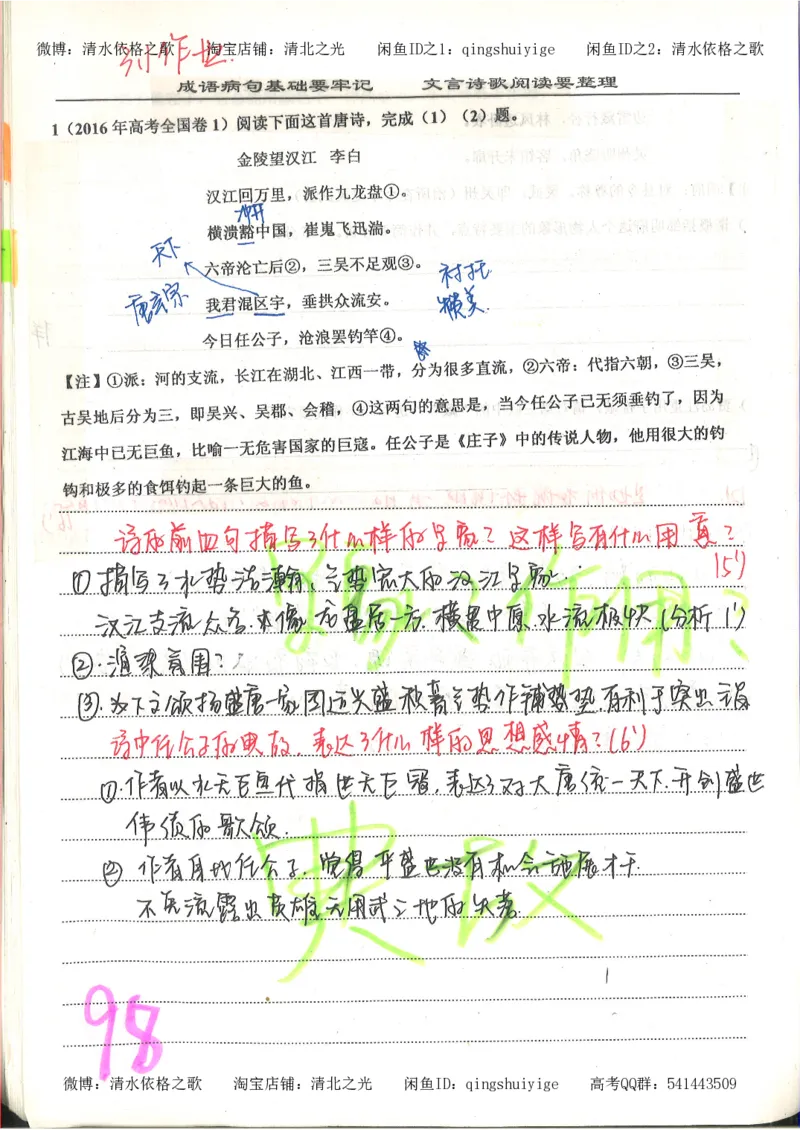 微博：清水依格之歌 淘宝店铺：清北之光 闲鱼ID之1：qingshuiyige 闲鱼ID之2：清水依格之歌
成语病句基础要牢记 文言诗歌阅读要整理
1（2016年高考全国卷1）阅读下面这首唐诗，完成（1）（2）题。
金陵望汉江 李白
汉江回万里，派作九龙盘①。
冲开
横溃豁中国，崔嵬飞迅湍。
天下
六帝沦亡后②，三吴不足观③。
衬托
唐玄宗
我君混区宇，垂拱众流安。
赞美
今日任公子，沧浪罢钓竿④。
【注】①派：河的支流，长江在湖北、江西一带，分为很多直流，②六帝：代指六朝，③三吴，
古吴地后分为三，即吴兴、吴郡、会稽，④这两句的意思是，当今任公子已无须垂钓了，因为
江海中已无巨鱼，比喻一无危害国家的巨寇。任公子是《庄子》中的传说人物，他用很大的钓
钩和极多的食饵钓起一条巨大的鱼。
诗的前四句描写了什么样的景象？这样写有什么用意？
(5')
①描写了水势浩瀚、气势宏大的汉江景象：
汉江支流众多，像龙盘居一方，横贯中原，水流极快（分析1'）
②.渲染氛围？
③.为下文颂扬盛唐一家 国运兴盛 气势作铺垫，有利于突出主旨
诗中任公子的典故，表达了什么样的思想感情？(6')
①.作者以水无巨鱼代指世无巨寇，表达了对大唐统一天下、开创盛世
伟绩的歌颂.
② 作者自比任公子，觉得平盛世没有机会施展才干.
不免流露出英雄无用武之地的失落
景象＋作用？
典故
98
微博：清水依格之歌 淘宝店铺：清北之光 闲鱼ID：qingshuiyige 高考QQ群：541443509